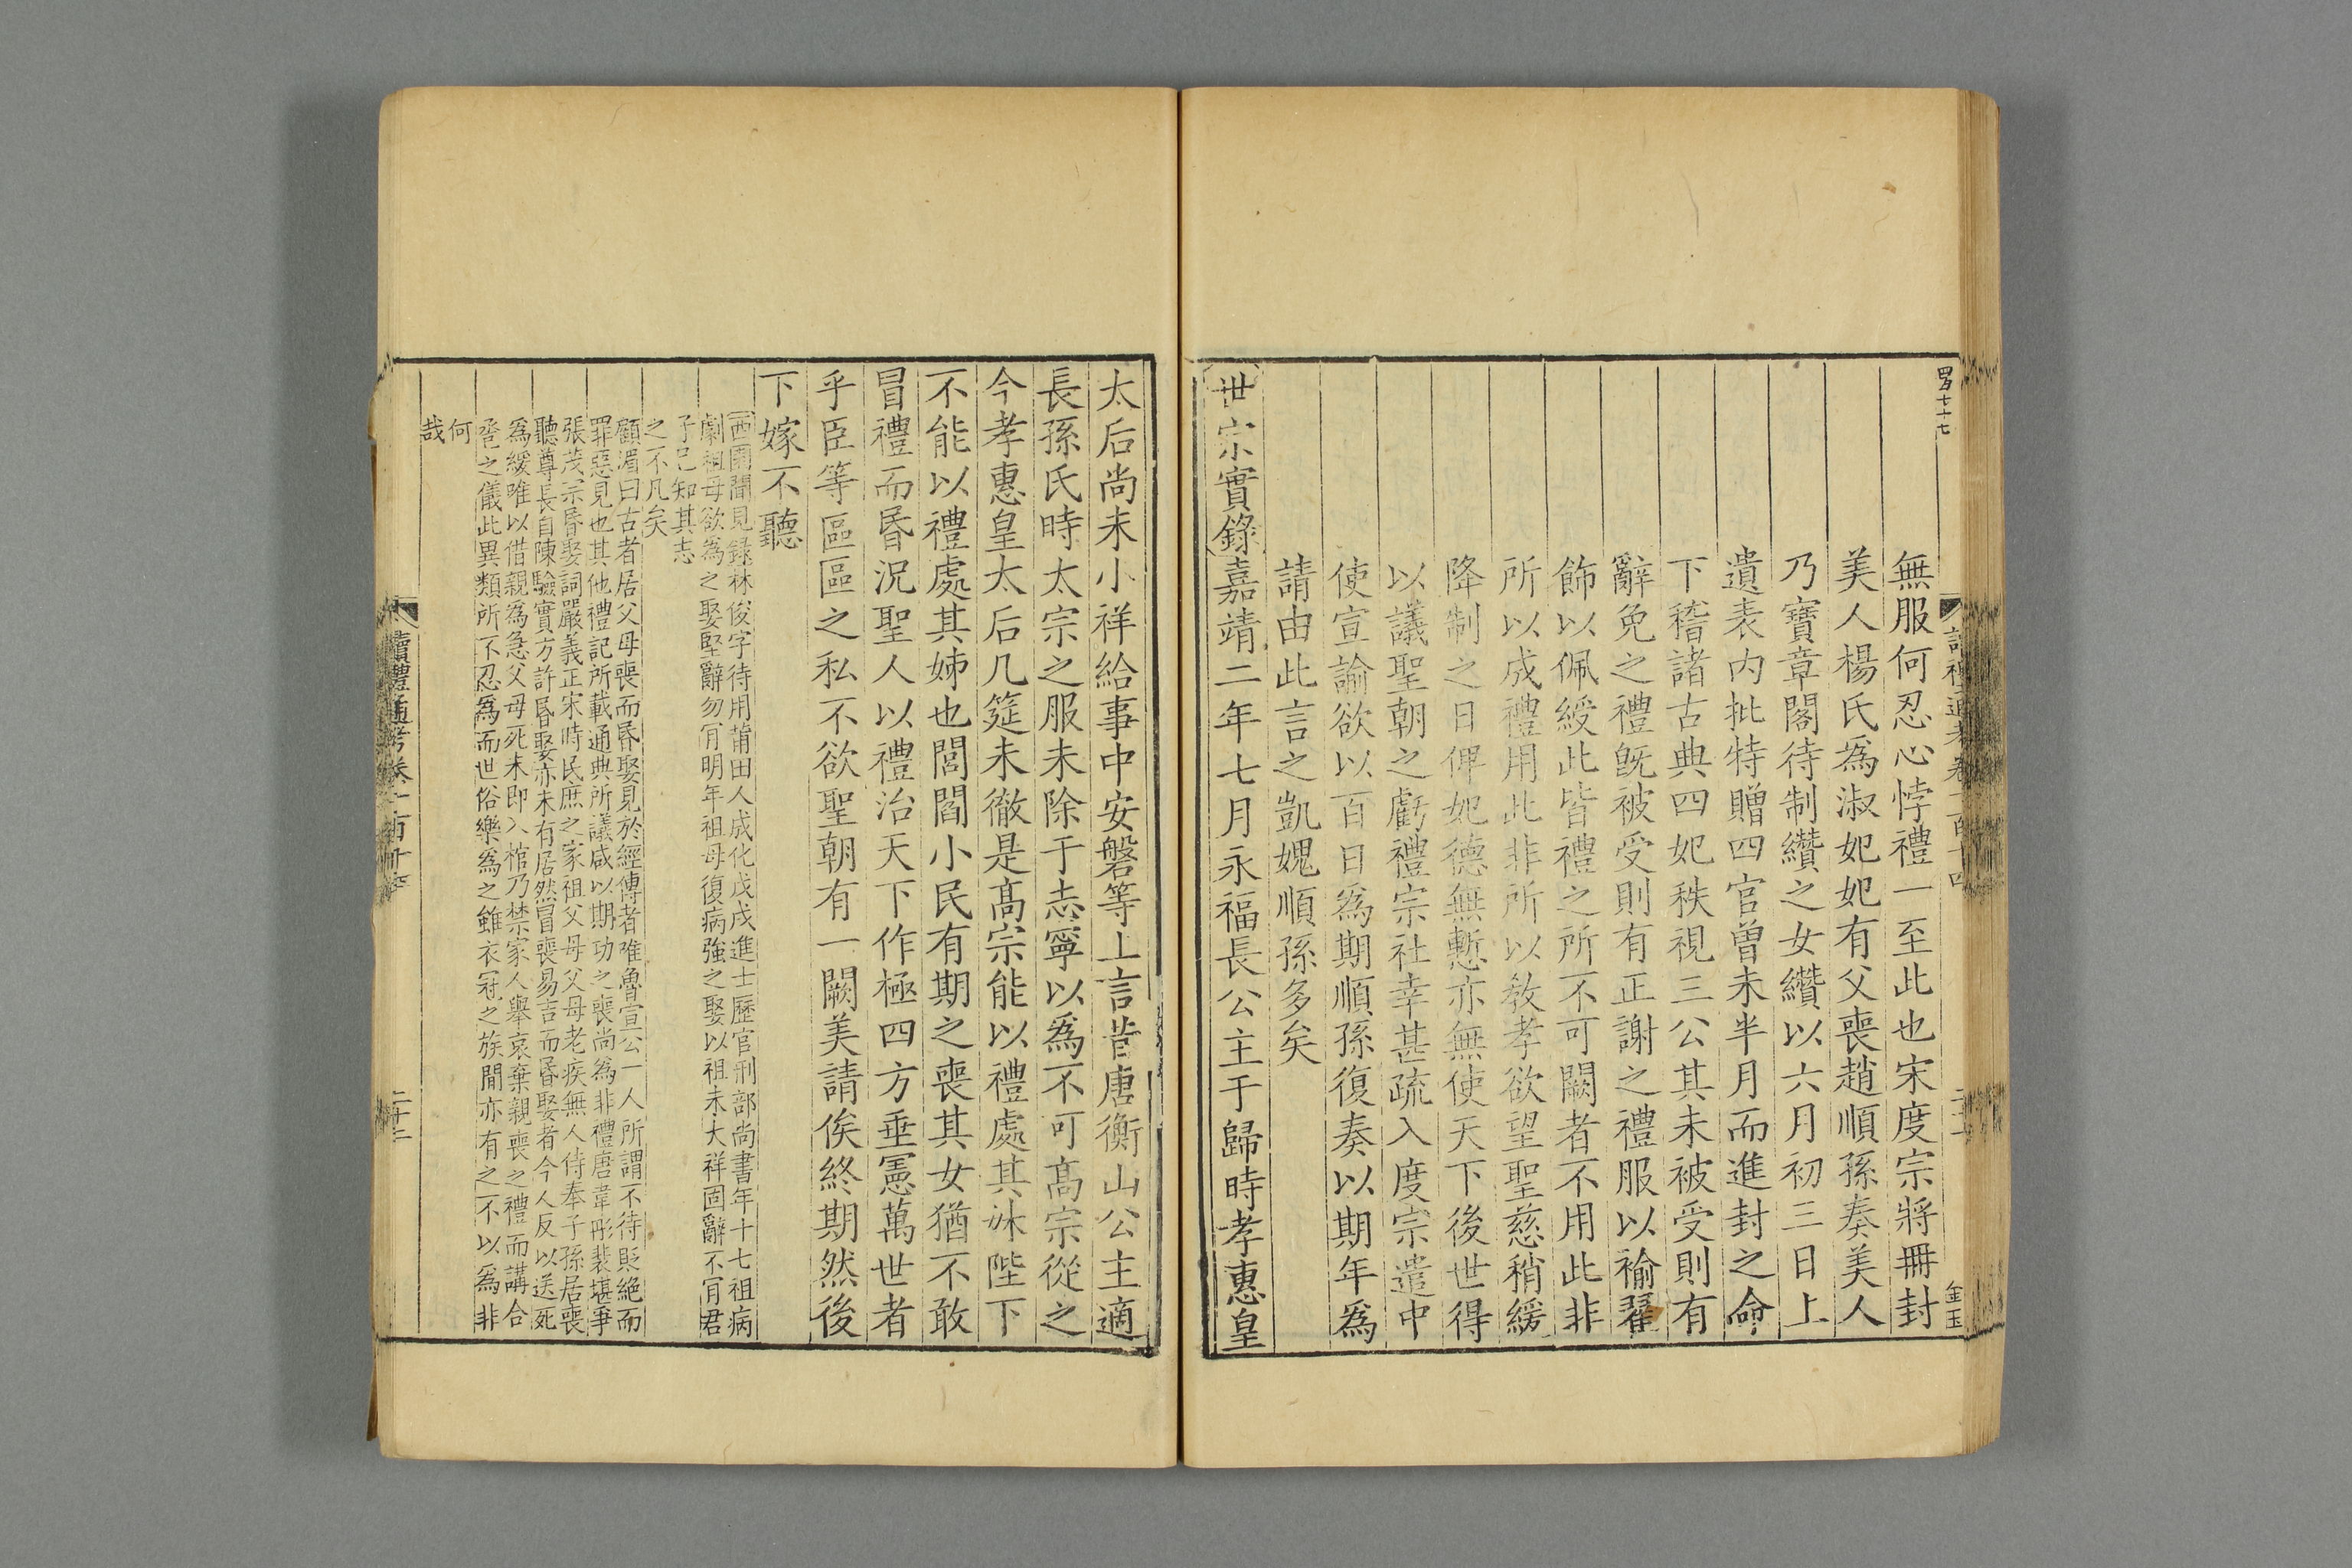 無服何忍心悖禮一至此也宋度宗將冊封
美人楊氏爲淑妃妃有父喪趙順孫奏美人
乃寶章閣待制纘之女纘以六月初三日上
遺表内批特贈四官曽未半月而進封之命
下稽諸古典四妃秩視三公其未被受則有
辭免之禮旣被受則有正謝之禮服以褕翟
飾以佩綬此皆禮之所不可闕者不用此非
所以成禮用此非所以敎孝欲望聖慈稍緩
降制之日俾妃德無慙亦無使天下後世得
以議聖朝之虧禮宗社幸甚疏入度宗遣中
使宣諭欲以百日爲期順孫復奏以期年爲
請由此言之凱媿順孫多矣
世宗實錄嘉靖二年七月永福長公主于歸時孝惠皇
太后尚未小祥給事中安磐等上言昔唐衡山公主適
長孫氏時太宗之服未除于志寧以爲不可髙宗從之
今孝惠皇太后几筵未徹是髙宗能以禮處其妹陛下
不能以禮處其姊也閭閻小民有期之喪其女猶不敢
冒禮而昏況聖人以禮治天下作極四方垂憲萬世者
乎臣等區區之私不欲聖朝有一闕美請俟終期然後
下嫁不聽
西園聞見錄林俊字待用莆田人成化戊戌進士歷官刑部尚書年十七祖病
劇祖母欲爲之娶堅辭勿肎明年祖母復病強之娶以祖未大祥固辭不肎君
子已知其志
之不凡矣
顧湄曰古者居父母喪而昏娶見於經傳者唯魯宣公一人所謂不待貶絶而
罪惡見也其他禮記所載通典所議咸以期功之喪尚爲非禮唐韋彤裴堪爭
張茂宗昏娶詞嚴義正宋時民庶之家祖父母父母老疾無人侍奉子孫居喪
聽尊長自陳驗實方許昏娶亦未有居然冒喪易吉而昏娶者今人反以送死
爲緩唯以借親爲急父母死未即入棺乃禁家人舉哀棄親喪之禮而講合
卺之儀此異類所不忍爲而世俗樂爲之雖衣冠之族閒亦有之不以爲非
何
哉
讀禮通考卷一百十四
金玉